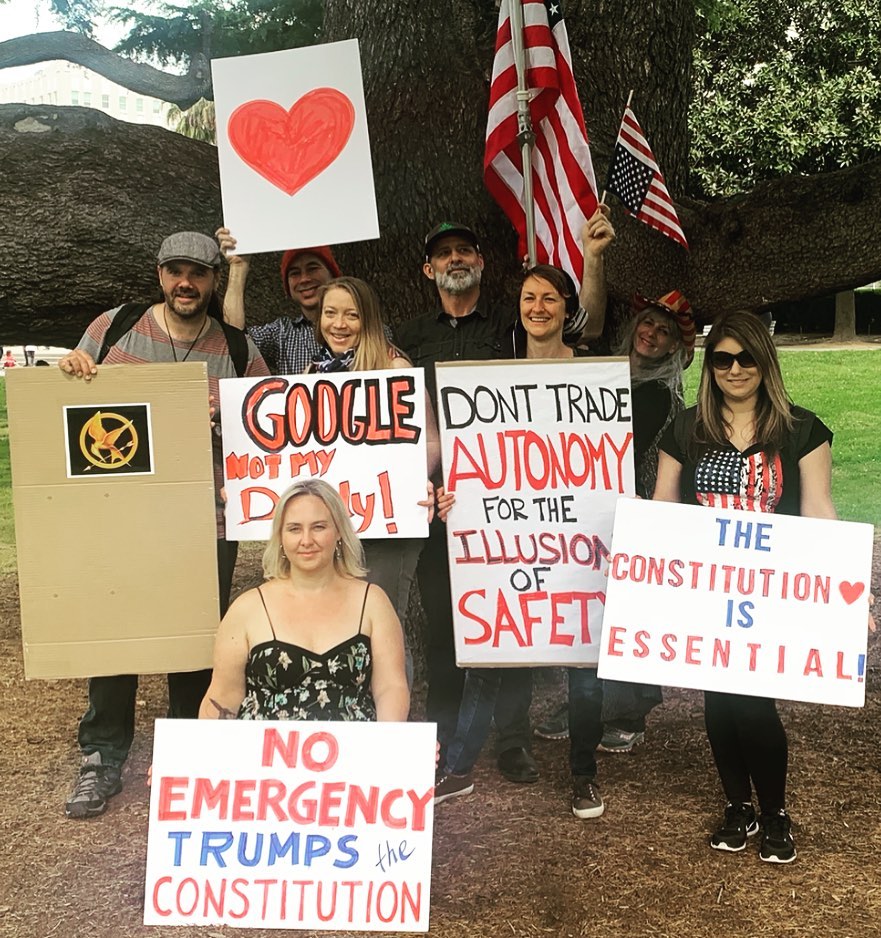 GOOGLE
NOT MY
DONT TRADE
AUTONOMY
FOR THE
ILLUSION
OF
SAFETY
THE
CONSTITUTION
IS
ESSENTIAL!
NO
EMERGENCY
TRUMPS the
CONSTITUTION